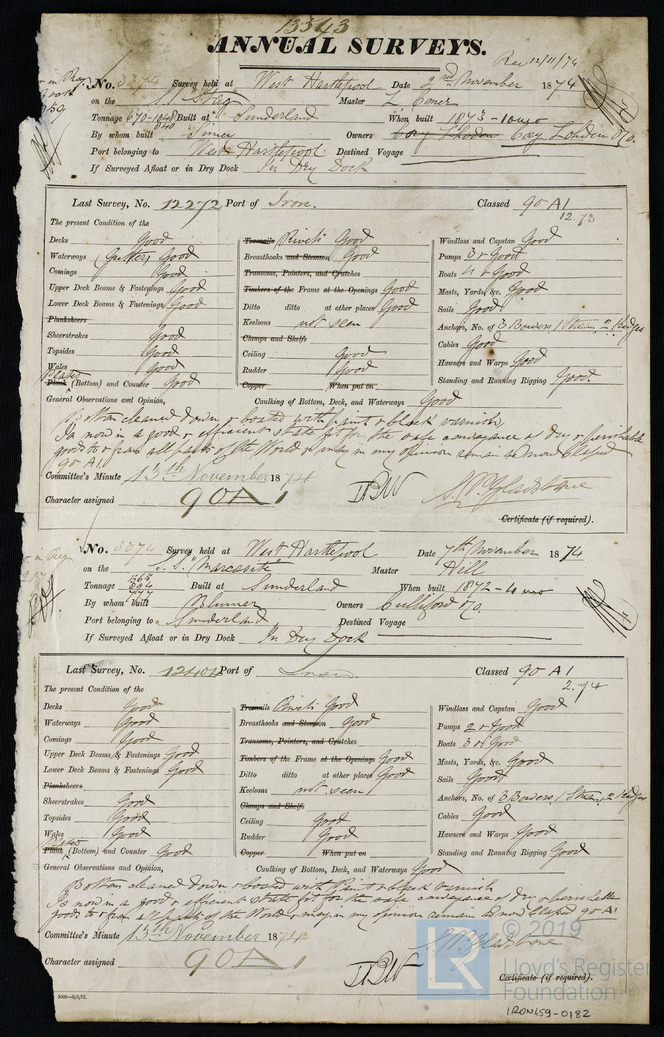 13343
ANNUAL SURVEYS.
Rec 12/11/74
No. 3273 Survey held at West Hartlepool Date 2nd November 1874
on the S.S. Master
Tonnage 670-1040 Built at Sunderland When built 1873-10mo
By whom built Owners Cory Lohden &Co.
Port belonging to West Hartlepool Destined Voyage
If Surveyed Afloat or in Dry Dock In Dry Dock
Last Survey, No. 12272 Port of Iron. Classed 90 A1
12.73
The present Condition of the
Decks Good
Waterways (Gutter) Good
Comings Good
Upper Deck Beams & Fastenings Good
Lower Deck Beams & Fastenings Good
Planksheers
Sheerstrakes Good
Topsides Good
Wales Good
Plates
Plank (Bottom) and Counter Good
Treenails Rivets Good
Breasthooks and Stemson Good
Transoms, Pointers, and Crutches
Timbers of the Frame at the Openings Good
Ditto ditto at other places Good
Keelsons not seen
Clamps and Shelfs
Ceiling Good
Rudder Good
Copper When put on
Windlass and Capstan Good
Pumps 3 & Good
Boats 4 & Good
Masts, Yards, &c. Good
Sails Good
Anchors, No. of 3 Bowers 1 Stream 2 Kedges
Cables Good
Hawsers and Warps Good
Standing and Running Rigging Good.
General Observations and Opinion, Caulking of Bottom, Deck, and Waterways Good
Bottom cleaned down & coated with paint & black varnish
Is now in a good & efficient state fit for the safe conveyance of dry & perishable
goods to & from all parts of the World & may in my opinion remain as now Classed
90 A1
Committee's Minute 13th November 1874
Character assigned 90A1
S.P. Gladstone
Certificate (if required).
No. 3274 Survey held at West Hartlepool Date 7th November 1874
on the S.S. "Marcasite" Master Hill
Tonnage Built at Sunderland When built 1872-4 mo
By whom built Blumer Owners Culliford &Co.
Port belonging to Sunderland Destined Voyage
If Surveyed Afloat or in Dry Dock In Dry Dock
Last Survey, No. Port of Iron Classed 90 A1
2.74
The present Condition of the
Decks Good
Waterways Good
Comings Good
Upper Deck Beams & Fastenings Good
Lower Deck Beams & Fastenings Good
Planksheers
Sheerstrakes Good
Topsides Good
Wales Good
Plates
Plank (Bottom) and Counter Good
Treenails Rivets Good
Breasthooks and Stemson Good
Transoms, Pointers, and Crutches
Timbers of the Frame at the Openings Good
Ditto ditto at other places Good
Keelsons not seen
Clamps and Shelfs
Ceiling Good
Rudder Good
Copper When put on
Windlass and Capstan Good
Pumps 2 & Good
Boats 3 & Good
Masts, Yards, &c. Good
Sails Good
Anchors, No. of 3 Bowers 1 Stream, 2 Kedges
Cables Good
Hawsers and Warps Good
Standing and Running Rigging Good
General Observations and Opinion, Caulking of Bottom, Deck, and Waterways Good
Bottom cleaned down & coated with paint & black varnish
Is now in a good & efficient state fit for the safe conveyance of dry & perishable
goods to & from all parts of the World & may in my opinion remain as now Classed 90 A1
Committee's Minute 13th November 1874
Character assigned 90A1
S.P. Gladstone
Certificate (if required).
© 2019
LR
Lloyd's Register
Foundation
IRON659-0182